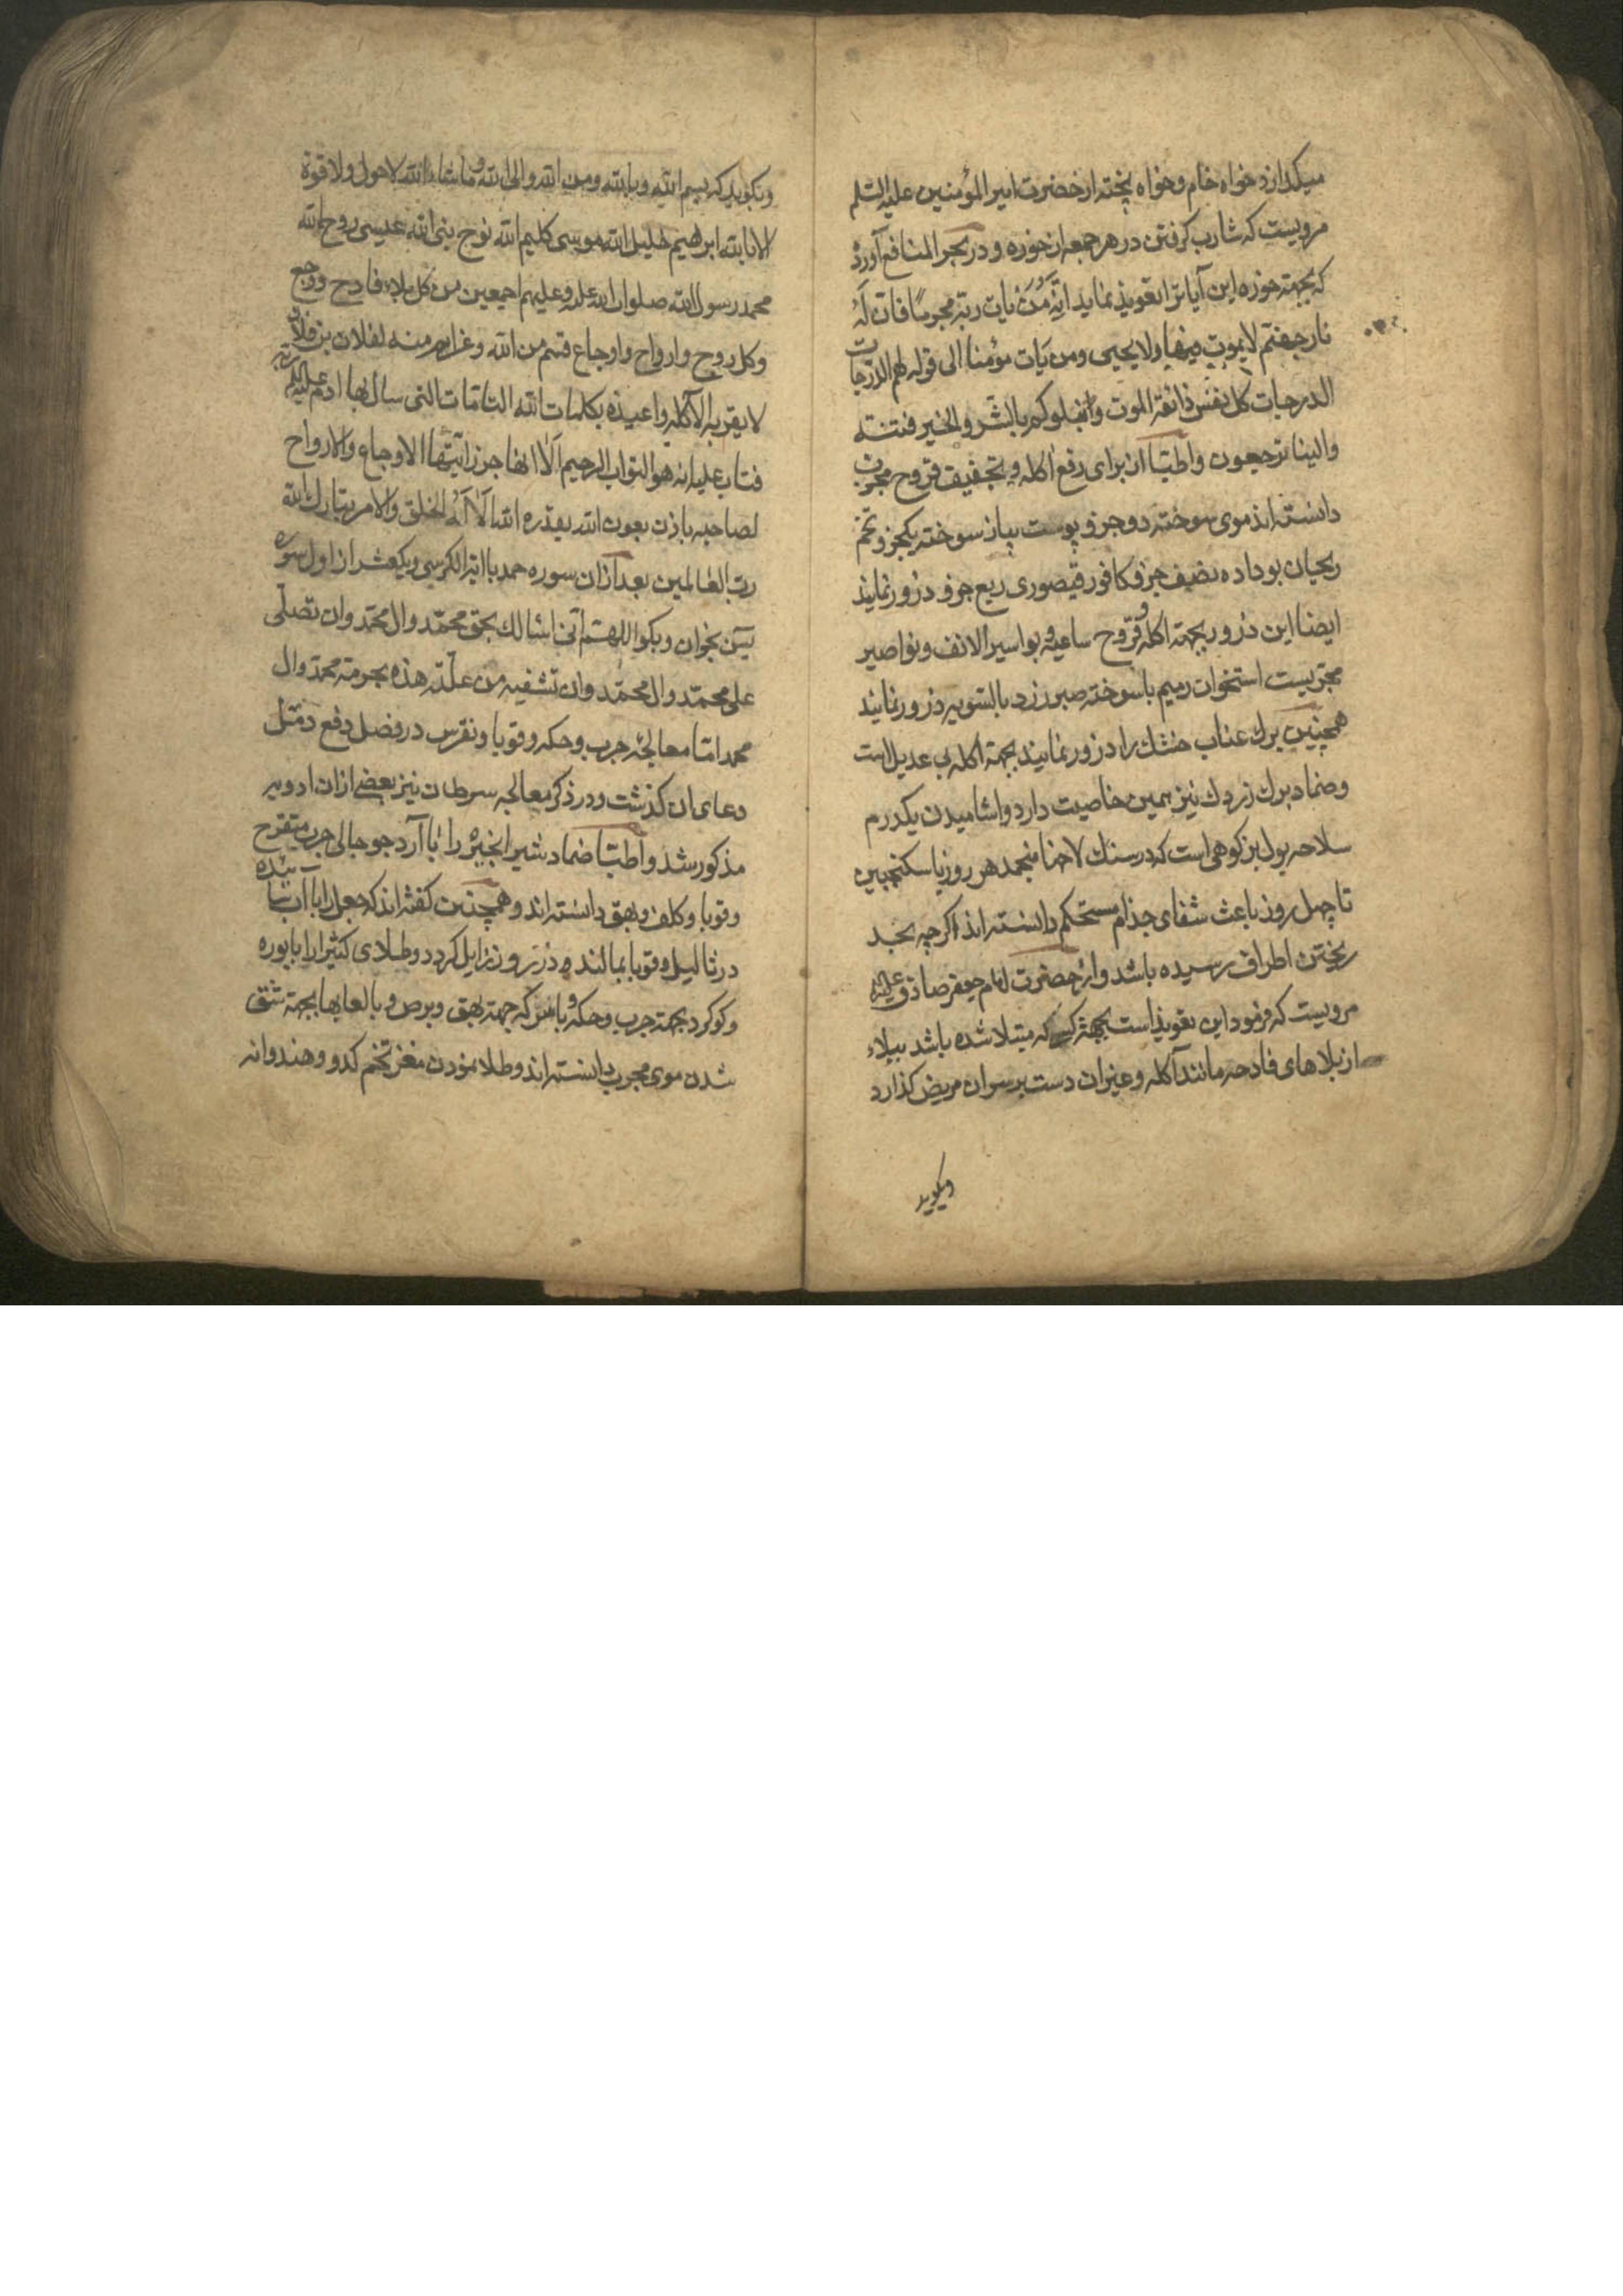 میکذارد خواه خام و خواه پخته از حضرت امیر المؤمنین علیه السلم
مرویست که شارب کرفتن در هر جمعه از خوره و در بحر المنافع آورده
که بجهته خوره این آیات را تعویذ نماید انه من یات ربه مجرما فان له
نار جهنم لا یموت فیها و لا یحیی و من یات مؤمنا الی قوله لهم الدرجات
الدرجات کل نفس ذائقة الموت و نبلوکم بالشر و الخیر فتنة
و الینا ترجعون و اطبا از برای رفع اکله و تجفیف قروح مجرب
دانسته اند موی سوخته دو جزو پوست پیاز سوخته یکجزو تخم
ریحان بو داده نصف جزو کافور قیصوری ربع جزو ذرور نمایند
ایضا این ذرور بجهته اکله و قروح ساعیه و بواسیر الانف و نواصیر
مجربست استخوان رمیم با سوخته صبر زرد بالسویه ذرور نمایند
همچنین برک عناب خشک را ذرور نمایند بجهته اکله بی عدیل است
و ضماد برک زردک نیز همین خاصیت دارد و اشامیدن یکدرم
سلاحه بول بز کوهی است که در سنک لاخها منجمد هر روز با سکنجبین
تا چهل روز باعث شفای جذام مستحکم دانسته اند اکرچه بحد
ریختن اطراف رسیده باشد و از حضرت امام جعفر صادق علیه
مرویست که فرمود این تعویذ است بجهة کسی که مبتلا شده باشد ببلاء
از بلاهای فادحه مانند آکله و غیر ان دست بر سر ان مریض کذارد
وبکوید
وبکوید که بسم الله و بالله و من الله و الی الله و ما شاء الله لا حول و لا قوة
الا بالله ابرهیم خلیل الله موسی کلیم الله نوح نبی الله عیسی روح الله
محمد رسول الله صلوات الله علیه و علیهم اجمعین من کل بلاء فادح و وجع
و کل روح و ارواح و اوجاع قسم من الله و عزایم منه لفلان بن فلان
لا یقربه الاکله و اعیذه بکلمات الله التامات التی سال بها ادم علیه ربه
فتاب علیه انه هو التواب الرحیم الا انها جرز ایتها الاوجاع و الارواح
لصاحبه باذن بعون الله بقدره الله الا له الخلق و الامر تبارک الله
رب العالمین بعد از ان سوره حمد با ایة الکرسی و یکعشر از اول سوره
یس بخوان و بکو اللهم انی اسالک بحق محمد و ال محمد و ان تصلی
علی محمد و ال محمد و ان تشفیه من علته هذه بحرمة محمد و ال
محمد اما معالجه جرب و حکه و قوبا و نقرس در فصل دفع دمل
دعای ان کذشت و در ذکر معالجه سرطان نیز بعضی از ان ادویه
مذکور شد و اطبا ضماد شیر انجیره را با آرد جو جالی جرب متقرح
و قوبا و کلف و بهق دانسته اند و همچنین کفته اند که جعل را با آب سائیده
در ثالیل و قوبا بمالند و در سه روز زایل کردد و طلای کثیرا را با بوره
و کوکرد بجهته جرب و حکه و با سرکه جهته بهق و برص و با لعابها بجهته شق
شدن موی مجرب دانسته اند و طلا نمودن مغز تخم کدو و هندوانه